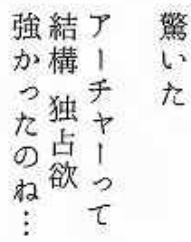 驚いた
アーチャーって
結構 独占欲
強かったのね…